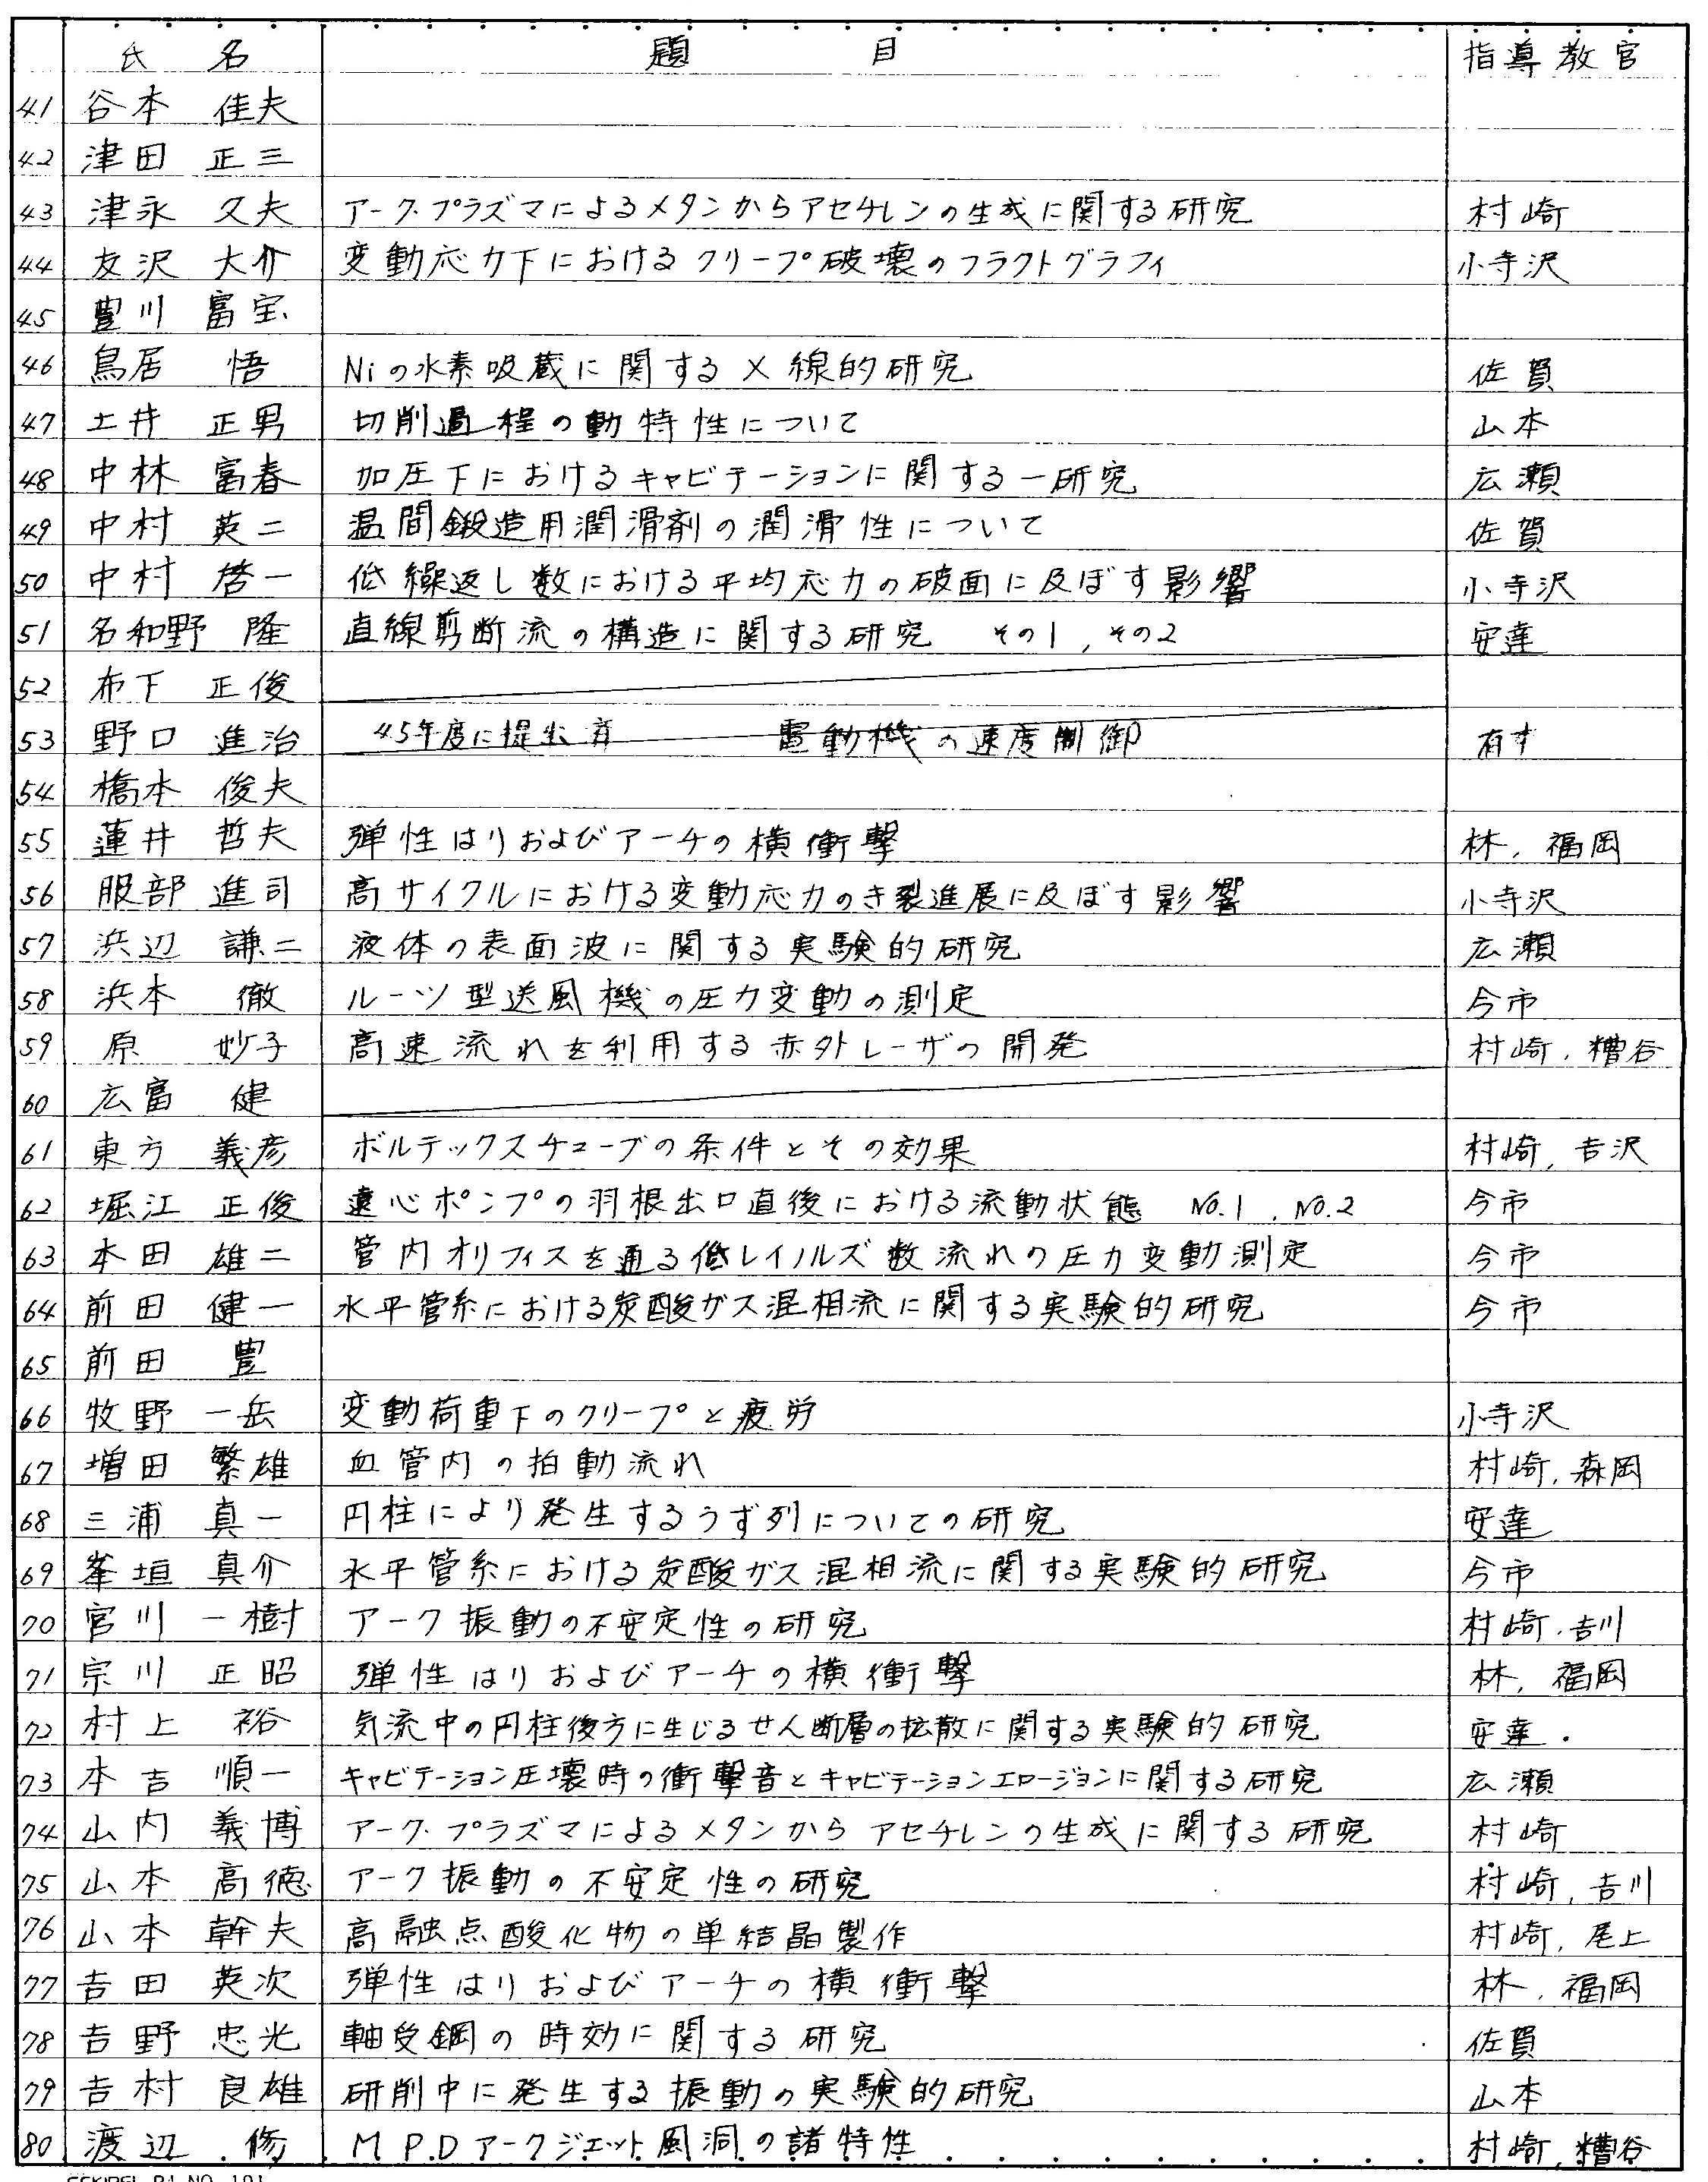 氏 名 題 目 指導教官
41 谷本 佳夫
42 津田 正三
43 津永 久夫 アーク・プラズマによるメタンからアセチレンの生成に関する研究 村崎
44 友沢 大介 変動応力下におけるクリープ破壊のフラクトグラフィ 小寺沢
45 豊川 富宝
46 鳥居 悟 Niの水素吸蔵に関するX線的研究 佐賀
47 土井 正男 切削過程の動特性について 山本
48 中林 富春 加圧下におけるキャビテーションに関する一研究 広瀬
49 中村 英二 温間鍛造用潤滑剤の潤滑性について 佐賀
50 中村 啓一 低繰返し数における平均応力の破面に及ぼす影響 小寺沢
51 名和野 隆 直線剪断流の構造に関する研究 その1, その2 安達
52 布下 正俊
53 野口 進治 45年度に提出済 電動機の速度制御 有す
54 橋本 俊夫
55 蓮井 哲夫 弾性はりおよびアーチの横衝撃 林, 福岡
56 服部 進司 高サイクルにおける変動応力のき裂進展に及ぼす影響 小寺沢
57 浜辺 謙二 液体の表面波に関する実験的研究 広瀬
58 浜本 徹 ルーツ型送風機の圧力変動の測定 今市
59 原 妙子 高速流れを利用する赤外レーザの開発 村崎, 糟谷
60 広富 健
61 東方 義彦 ボルテックスチューブの条件とその効果 村崎, 吉沢
62 堀江 正俊 遠心ポンプの羽根出口直後における流動状態 No.1, No.2 今市
63 本田 雄二 管内オリフィスを通る低レイノルズ数流れの圧力変動測定 今市
64 前田 健一 水平管系における炭酸ガス混相流に関する実験的研究 今市
65 前田 豊
66 牧野 一岳 変動荷重下のクリープと疲労 小寺沢
67 増田 繁雄 血管内の拍動流れ 村崎, 森岡
68 三浦 真一 円柱により発生するうず列についての研究 安達
69 峯垣 真介 水平管系における炭酸ガス混相流に関する実験的研究 今市
70 宮川 一樹 アーク振動の不安定性の研究 村崎, 吉川
71 宗川 正昭 弾性はりおよびアーチの横衝撃 林, 福岡
72 村上 裕 気流中の円柱後方に生じるせん断層の拡散に関する実験的研究 安達.
73 本吉 順一 キャビテーション圧壊時の衝撃音とキャビテーションエロージョンに関する研究 広瀬
74 山内 義博 アーク・プラズマによるメタンからアセチレンの生成に関する研究 村崎
75 山本 高徳 アーク振動の不安定性の研究 村崎, 吉川
76 山本 幹夫 高融点酸化物の単結晶製作 村崎, 尾上
77 吉田 英次 弾性はりおよびアーチの横衝撃 林, 福岡
78 吉野 忠光 軸受鋼の時効に関する研究 佐賀
79 吉村 良雄 研削中に発生する振動の実験的研究 山本
80 渡辺 修 M.P.Dアークジェット風洞の諸特性 村崎, 糟谷